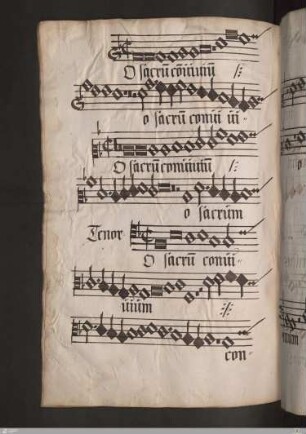 O sacrū cōuiuiū
o sacrū conui ui
O sacrū conuiuiū
o sacrum
Tenor
O sacrū conui
uium
con